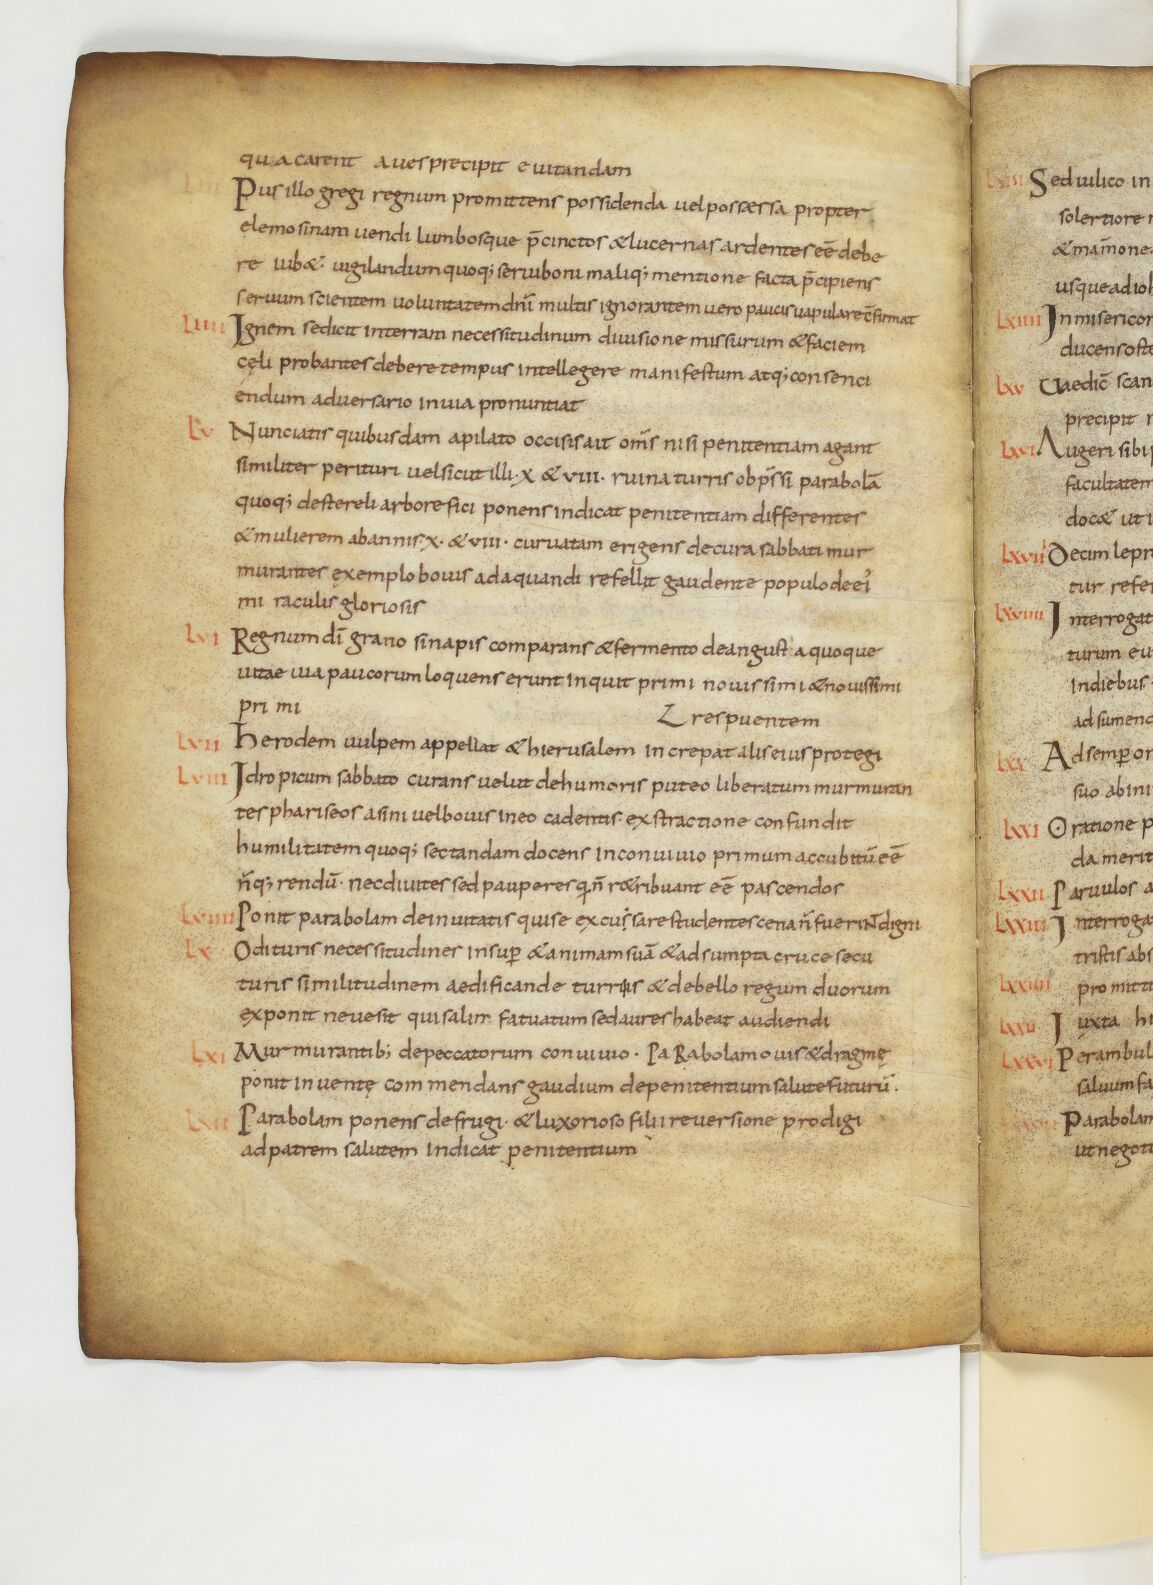 qua carent aues precipit euitandam
LIII Pusillo gregi regnum promittens possidenda uel possæssa propter
elemosinam uendi lumbosque p̄cinctos &lucernas ardentes eē debe
re iub&· uigilandum quoq; seruiboni maliq; mentione facta p̄cipiens
seruum scientem uoluntatem dn̄i multis ignorantem uero paucis uapulare c̄firmat
LIIII Ignem se dicit in terram necessitudinum diuisione missurum &faciem
cęli probantes debere tempus intellegere manifestum atq; consenci
endum aduersario in uia pronuntiat
LV Nunciatis quibusdam a pilato occisis ait om̄s nisi penitentiam agant
similiter perituri uel sicut illi·X &VIII· ruina turris obp̄ssi parabolā
quoq; de stereli arbore fici ponens indicat penitentiam differentes
&mulierem ab annis·X·&VIII· curuatam erigens de cura sabbati mur
murantes exemplo bouis adaquandi refellit gaudente populo de ei'
miraculis gloriosis
LVI Regnum dī grano sinapis comparans &fermento de angusta quoque
uitae uia paucorum loquens erunt inquit primi nouissimi &nouissimi
primi
respuentem
LVII Herodem uulpem appellat &hierusalem increpat alis eius protegi
LVIII Idropicum sabbato curans uelut de humoris puteo liberatum murmuran
tes phariseos asini uel bouis in eo cadentis exstractione confundit
humilitatem quoq; sectandam docens in conuiuio primum accubitū eē
n̄ q;rendū· nec diuites sed pauperes qi n̄ r&ribuant eē pascendos
LVIIII Ponit parabolam de inuitatis qui se excusare studentes cena n̄ fuerint digni
LX Odituris necessitudines insup &animam suā &adsumpta cruce secu
turis similitudinem aedificande turris &de bello regum duorum
exponit neue sit qui salinr fatuatum sed aures habeat audiendi
LXI Murmurantib; de peccatorum conuiuio· Parabolam ouis &dragmę
ponit inuentę commendans gaudium de penitentium salute futurū·
LXII Parabolam ponens de frugi· &luxorioso filii reuersione prodigi
ad patrem salutem indicat penitentium
LXIII Sed uilico in
solertiore
&mamone
usque ad ioh
LXIIII In misericor
ducens oste
LXV Uae dic̄ scan
precipit
LXVI Augeri sibi
facultatem
doc& ut i
LXVII Decim lepr
tur refe
LXVIII Interrogat
turum eu
In diebus
adsumend
LXX Ad semp or
suo abini
LXXI Oratione p
da merit
LXXII Paruulos a
LXXIII Interroga
tristis abs
LXXIIII promitti
LXXV Iuxta hi
LXXVI Perambul
saluum fa
Parabolam
ut negoti